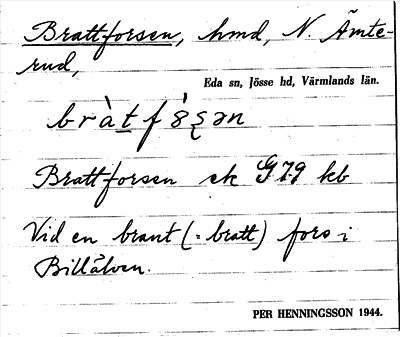 Brattforsen, hmd, N. Ämte-
rud,
Eda sn, Jösse hd, Värmlands län.
Brattforsen ek G 79 kb
Vid en brant (= bratt) fors i
Billälven.
PER HENNINGSSON 1944.